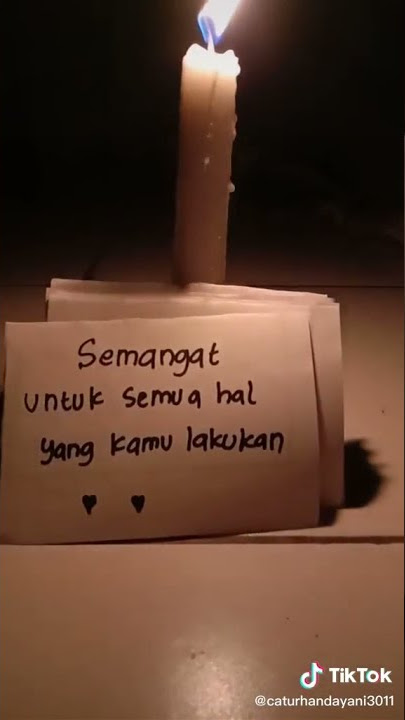 Semangat
untuk semua hal
yang kamu lakukan
♥ ♥
TikTok
@caturhandayani3011